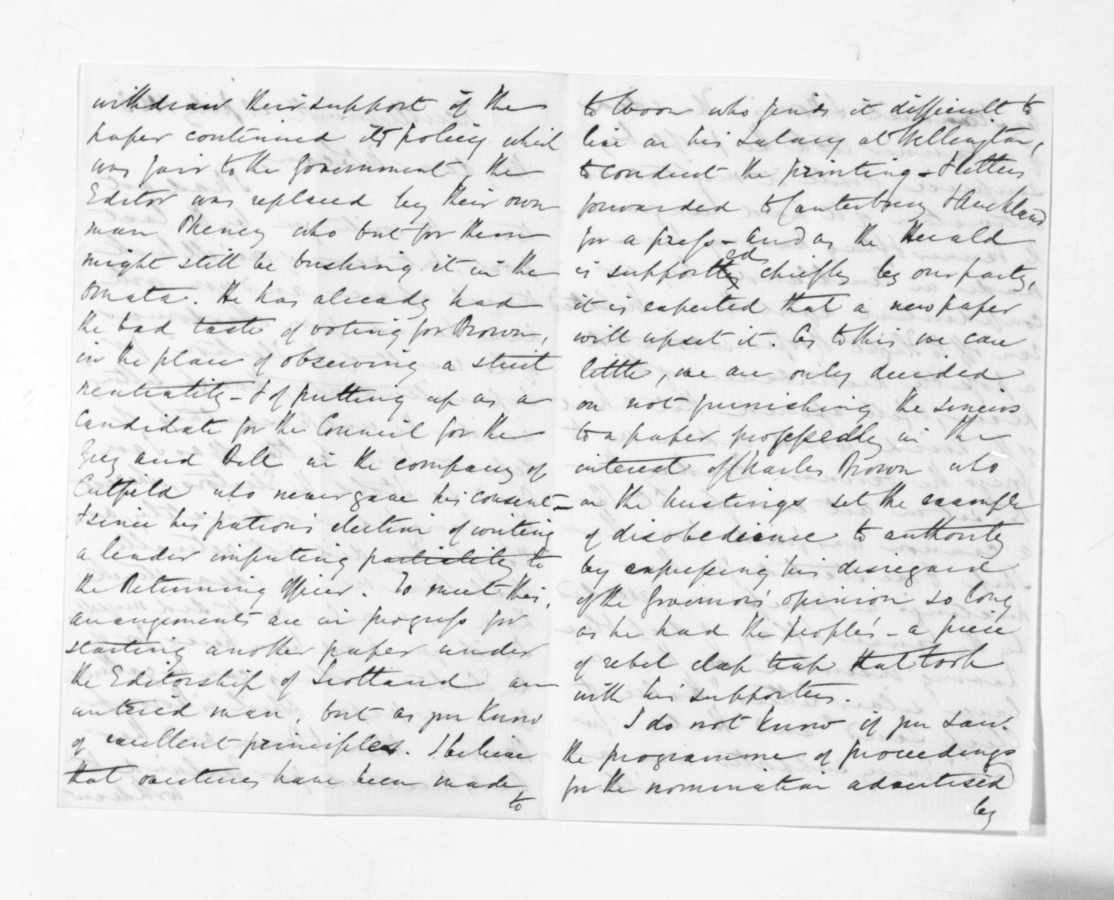 withdraw their support if the
paper continued its policy which
was fair to the Government, the
Editor was replaced by their own
man Pheney who but for them
might still be bushing it in the
Omata. He has already had
the bad taste of voting for Brown,
in the place of observing a strict
neutrality - & of putting up as a
Candidate for the Council for the
Grey and Bell in the company of
Cutfield who never gave his consent -
& since his patron's election of writing
a leader imputing partiality to
the Returning Officer. To meet this,
arrangements are in progress for
starting another paper under
the Editorship of Scotland an
untried man, but as you know
of excellent principles. I believe
that overtures have been made
to
to Woon who finds it difficult to
live on his salary at Wellington,
to conduct the printing - & letters
forwarded to Canterbury & Auckland
for a press - and as the Herald
is supported chiefly by our party,
it is expected that a new paper
will upset it. As to this we care
little, we are only decided
on not furnishing the sinews
to a paper professedly in the
interest of Charles Brown who
on the hustings set the example
of disobedience to authority
by expressing his disregard
of the Governor's opinion so long
as he had the people's - a piece
of rebel clap trap that took
with his supporters.
I do not know if you saw
the programme of proceedings
for the nomination advertised
by